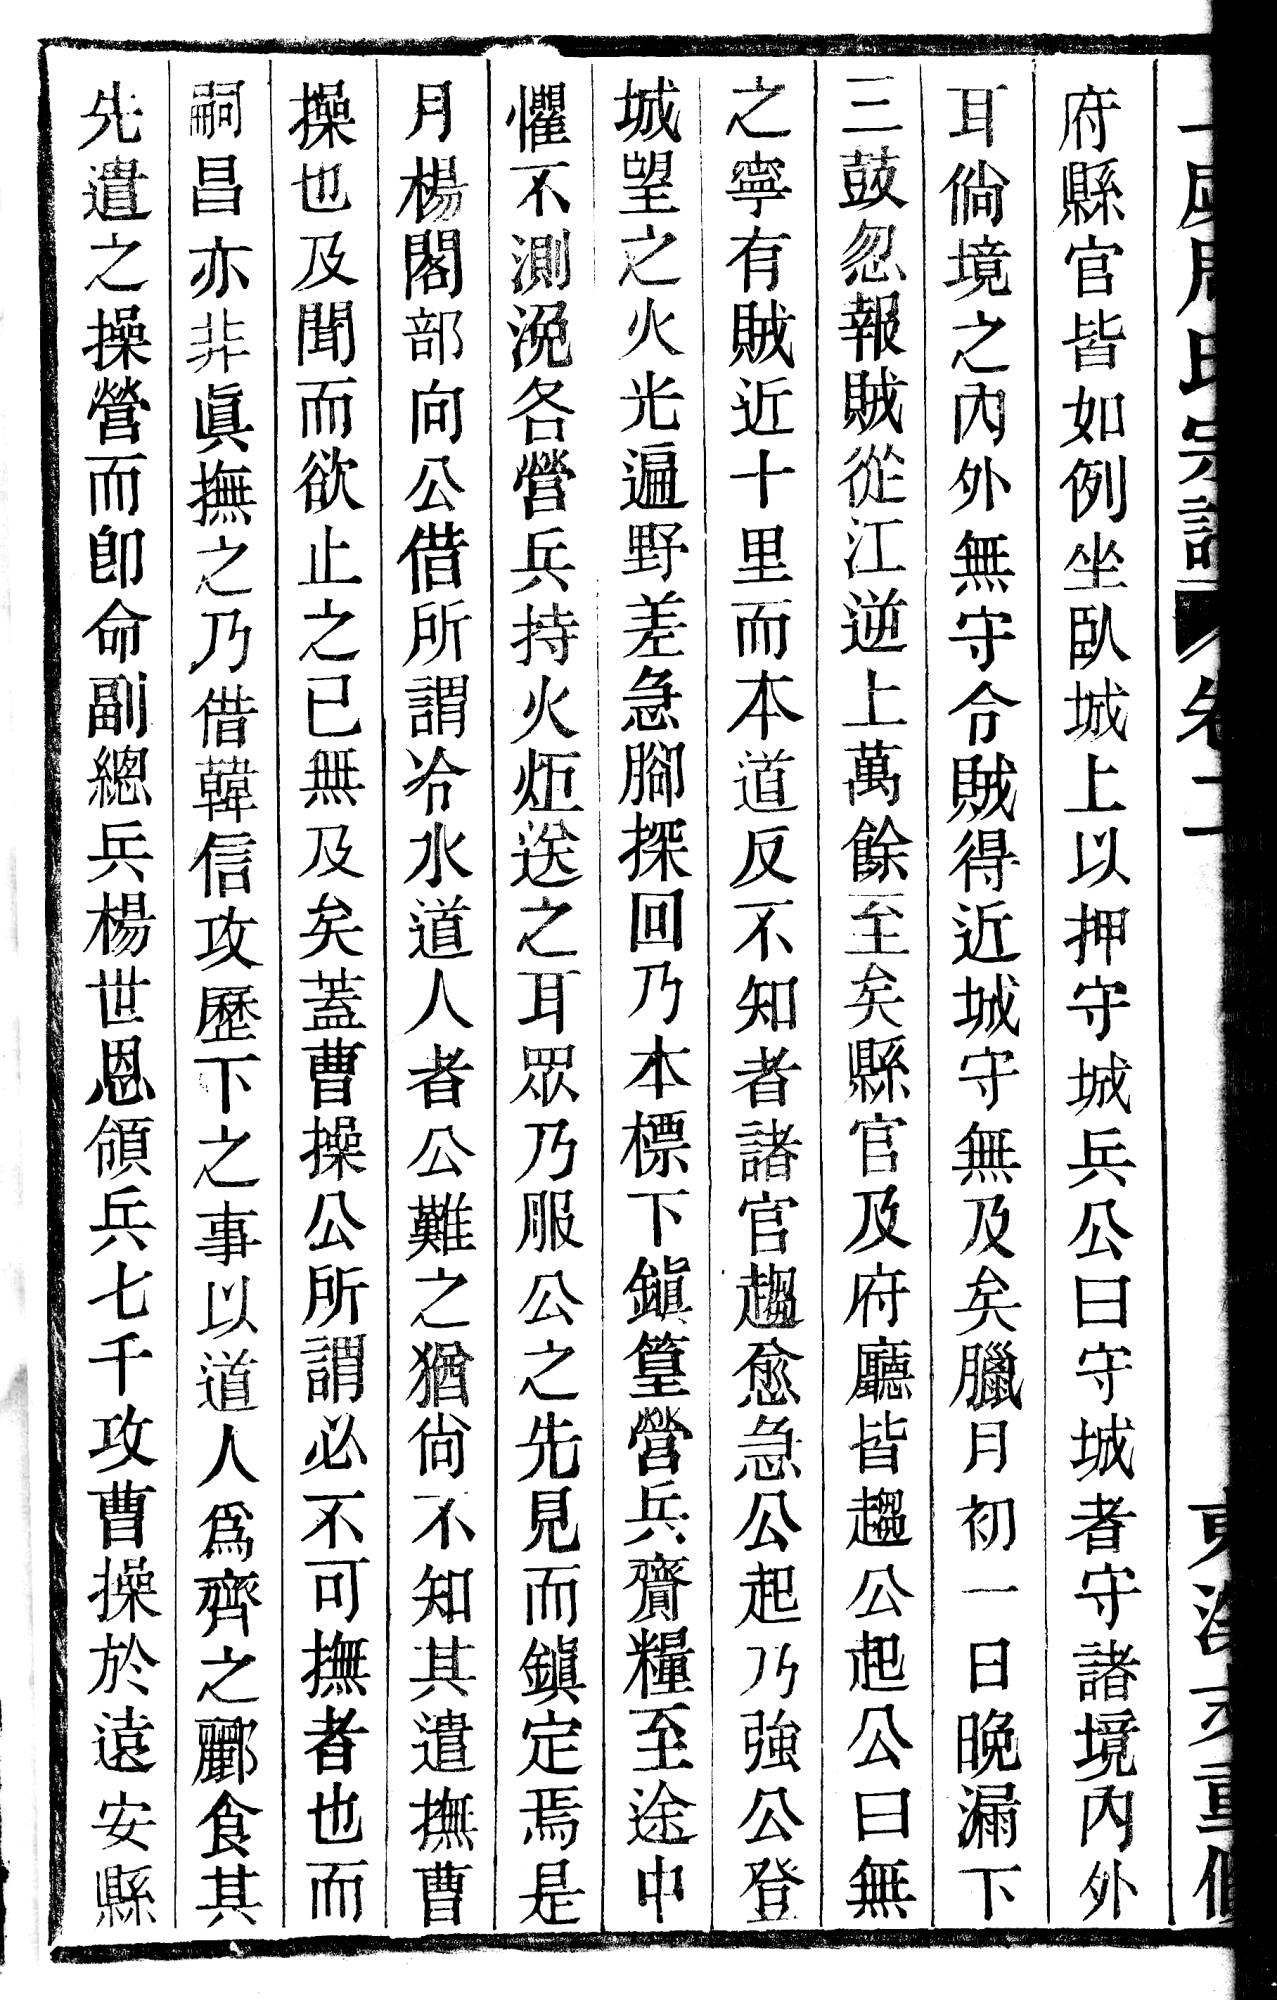 氏宗譜 卷二
府縣官皆如例坐臥城上以押守城兵公曰守城者守諸境內外
耳倘境之內外無守令賊得近城守無及矣臘月初一日晚漏下
三鼓忽報賊從江逆上萬餘至矣縣官及府廳皆趨公起公曰無
之寧有賊近十里而本道反不知者諸官趨愈急公起乃強公登
城望之火光遍野差急腳探回乃本標下鎮篁營兵齎糧至途中
懼不測浼各營兵持火炬送之耳眾乃服公之先見而鎮定焉是
月楊閣部向公借所謂冷水道人者公難之猶尙不知其遣撫曹
操也及聞而欲止之已無及矣蓋曹操公所謂必不可撫者也而
嗣昌亦非眞撫之乃借韓信攻歷下之事以道人爲齊之酈食其
先遣之操營而卽命副總兵楊世恩領兵七千攻曹操於遠安縣